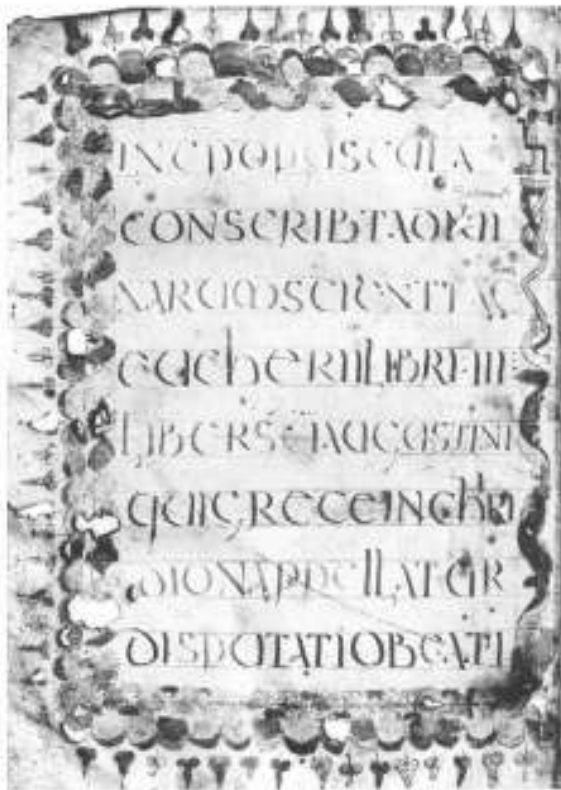 INCP OPUSCULA
CONSCRIBTA
NARUM SCIENTIAE
EUCHERII LIBRI III
LIBER SCI AUGUSTINI
QUI GRECE INCHRI
DION APPELLATUR
DISPUTATIO BEATI